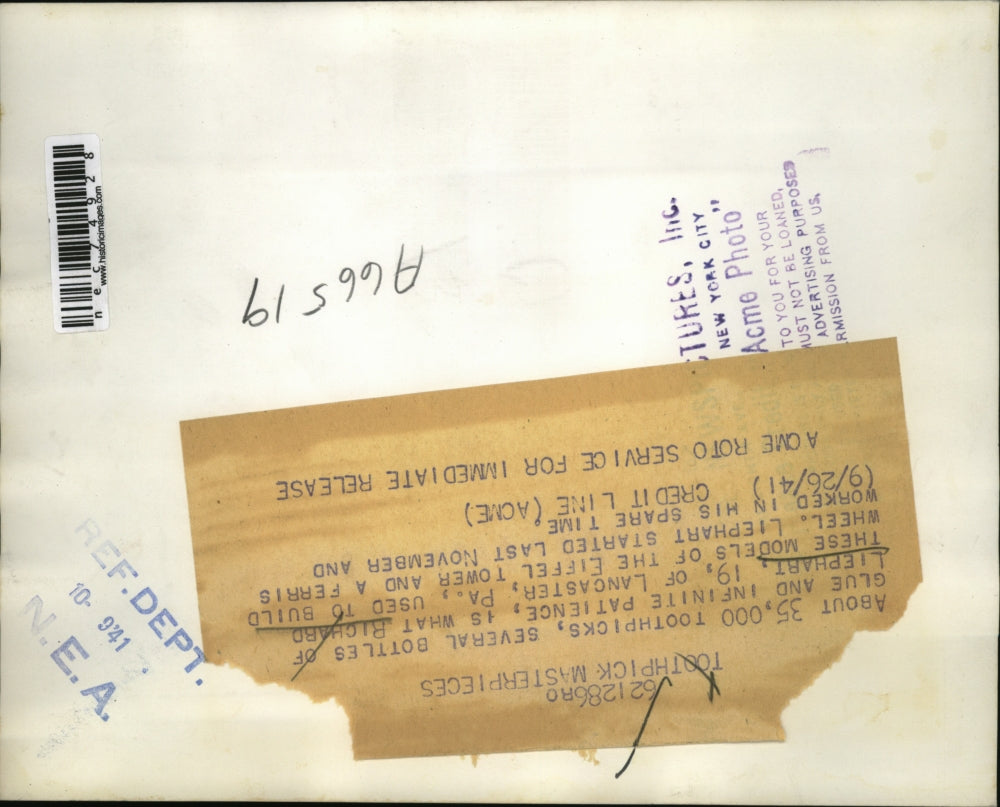 621286RO
TOOTHPICK MASTERPIECES
ABOUT 35,000 TOOTHPICKS, SEVERAL BOTTLES OF
GLUE AND INFINITE PATIENCE, IS WHAT RICHARD
LIEPHART, 19, OF LANCASTER, PA., USED TO BUILD
THESE MODELS OF THE EIFFEL TOWER AND A FERRIS
WHEEL. LIEPHART STARTED LAST NOVEMBER AND
WORKED IN HIS SPARE TIME.
(9/26/41) CREDIT LINE (ACME)
ACME ROTO SERVICE FOR IMMEDIATE RELEASE
A66519
TURES, Inc.
NEW YORK CITY
Acme Photo"
TO YOU FOR YOUR
MUST NOT BE LOANED,
ADVERTISING PURPOSES
RMISSION FROM US.
REF. DEPT.
10- 941
N.E.A.
nec74928
www.historicimages.com